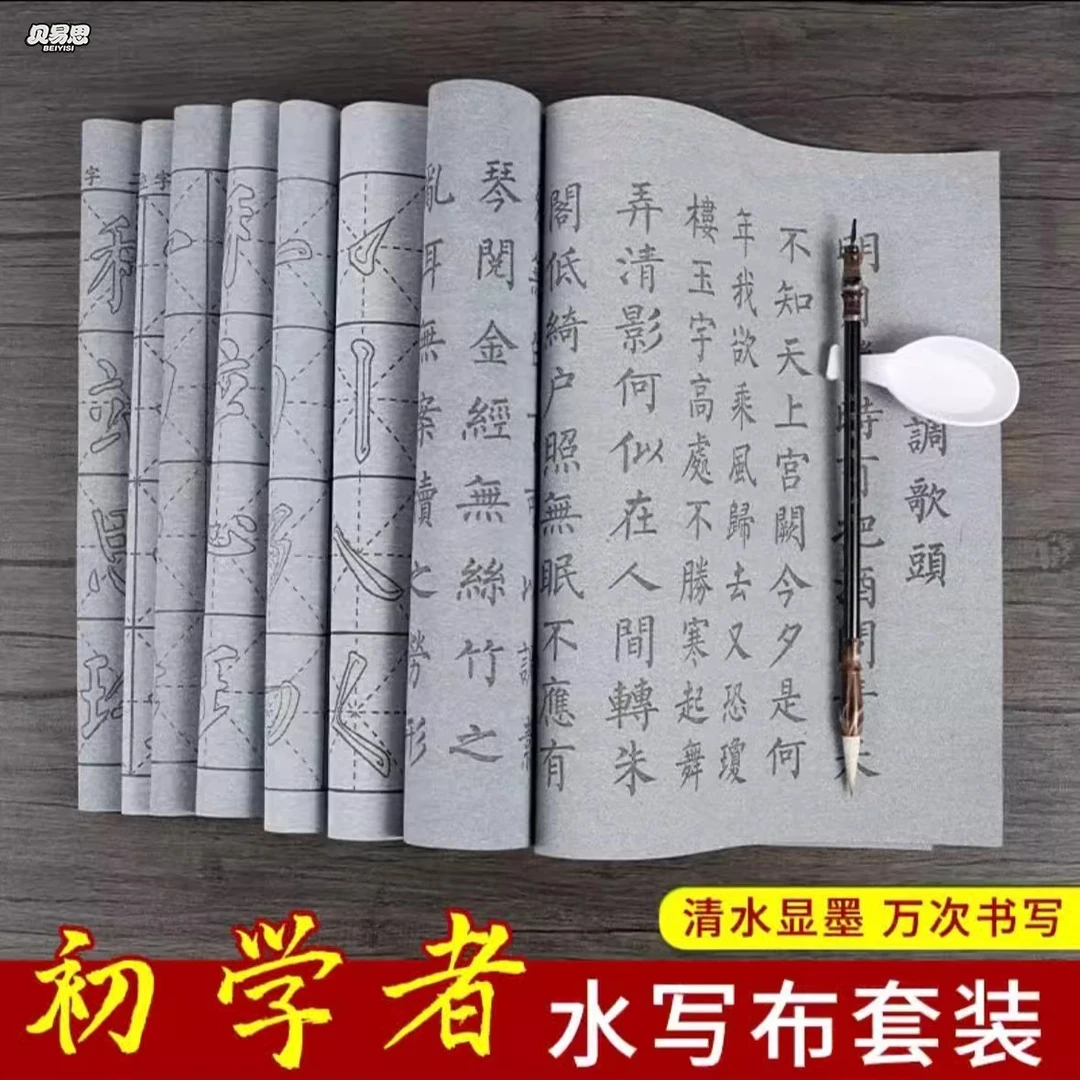 贝易思
BEIYISI
調歌頭
不知天上宮闕今夕是何
年我欲乘風歸去又恐瓊
樓玉宇高處不勝寒起舞
弄清影何似在人間轉朱
閣低綺户照無眠不應有
琴閱金經無絲竹之
亂耳無案牘之勞形
字
清水显墨 万次书写
初学者
水写布套装